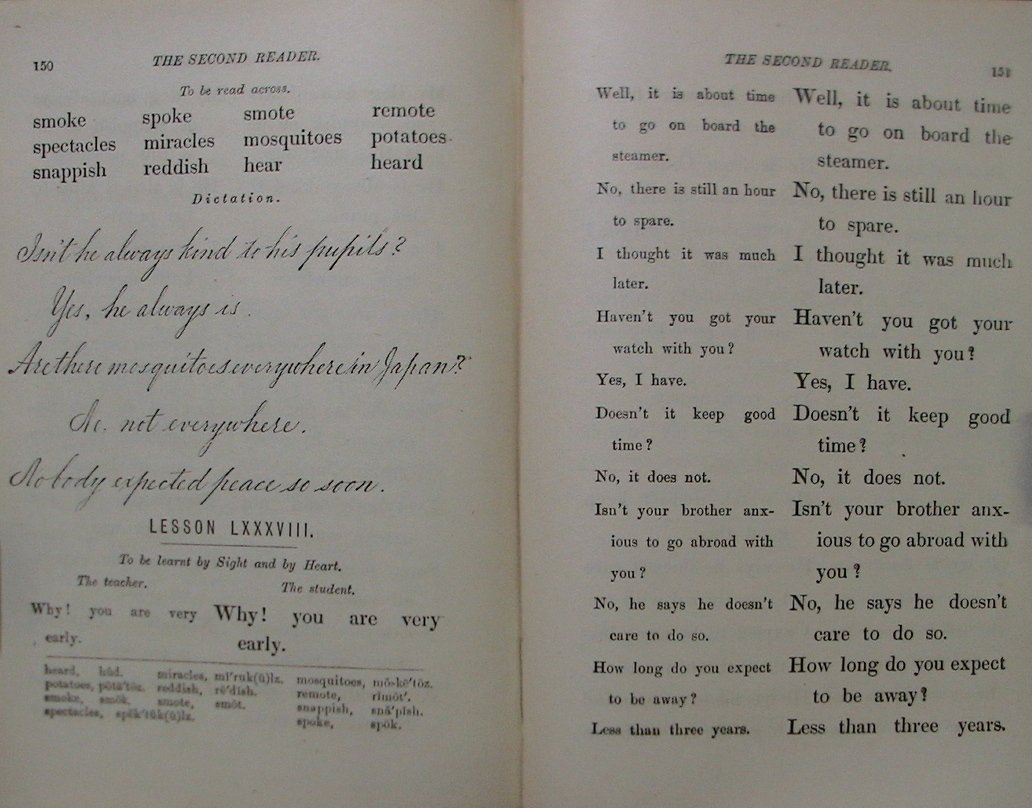 150 THE SECOND READER.
To be read across.
smoke spoke smote remote
spectacles miracles mosquitoes potatoes
snappish reddish hear heard
Dictation.
Isn't he always kind to his pupils?
Yes, he always is.
Are there mosquitoes everywhere in Japan?
No. not everywhere.
Nobody expected peace so soon.
LESSON LXXXVIII.
To be learnt by Sight and by Heart.
The teacher. The student.
Why! you are very Why! you are very
early. early.
heard, hûd. miracles, mosquitoes,
potatoes, reddish, remote,
smoke, smōk. smote, smōt. snappish,
spectacles, spoke, spōk.
THE SECOND READER. 151
Well, it is about time Well, it is about time
to go on board the to go on board the
steamer. steamer.
No, there is still an hour No, there is still an hour
to spare. to spare.
I thought it was much I thought it was much
later. later.
Haven't you got your Haven't you got your
watch with you? watch with you?
Yes, I have. Yes, I have.
Doesn't it keep good Doesn't it keep good
time? time?
No, it does not. No, it does not.
Isn't your brother anx- Isn't your brother anx-
ious to go abroad with ious to go abroad with
you? you?
No, he says he doesn't No, he says he doesn't
care to do so. care to do so.
How long do you expect How long do you expect
to be away? to be away?
Less than three years. Less than three years.